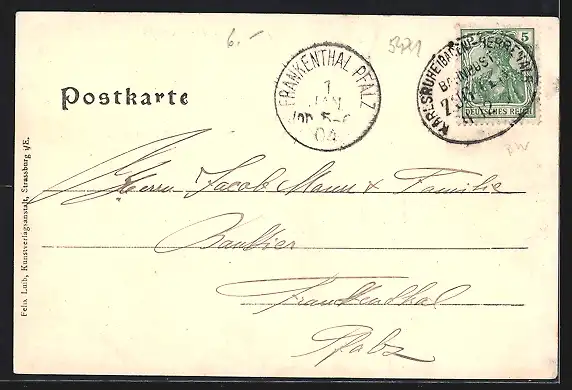 6.-
5421
Postkarte
FRANKENTHAL PFALZ
1
JAN
04
KARLSRUHE (BADEN)-HERRENALB
BAHNPOST
ZUG
5
DEUTSCHES REICH
Herrn Jacob Mann & Familie
Bankier
Frankenthal
Pfalz
Felix Luib, Kunstverlagsanstalt, Strassburg i/E.